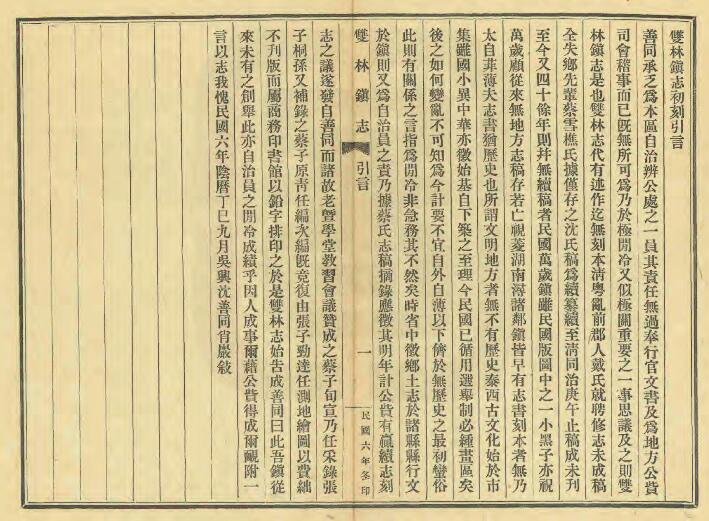 雙林鎮志初刻引言
善同承乏爲本區自治辦公處之一員其責任無過奉行官文書及爲地方公貲
司會稽事而已旣無所可爲乃於極閒冷又似極關重要之一事思議及之則雙
林鎮志是也雙林志代有述作迄無刻本淸粵亂前郡人戴氏就聘修志未成稿
全失鄉先輩蔡雪樵氏據僅存之沈氏稿爲續纂續至淸同治庚午止稿成未刊
至今又四十餘年則幷無續稿者民國萬歲鎮雖民國版圖中之一小黑子亦祝
萬歲顧從來無地方志稿存若亡視菱湖南潯諸鄰鎮皆早有志書刻本者無乃
太自菲薄夫志書猶歷史也所謂文明地方者無不有歷史泰西古文化始於市
集雖國小異中華亦徵始基自下築之至理今民國已循用選舉制必種畫區矣
後之如何變亂不可知爲今計要不宜自外自薄以下儕於無歷史之最初蠻俗
此則有關係之言指爲閒冷非急務其不然矣時省中徵鄉土志於諸縣縣行文
於鎮則又爲自治員之責乃據蔡氏志稿摘錄應徵其明年計公貲有贏續志刻
雙林鎮志 引言 一 民國六年冬印
志之議遂發自善同而諸故老曁學堂敎習會議贊成之蔡子旬宣乃任采錄張
子桐孫又補錄之蔡子原靑任編次編旣竟復由張子勁達任測地繪圖以費絀
不刊版而屬商務印書館以鉛字排印之於是雙林志始吿成善同曰此吾鎮從
來未有之創舉此亦自治員之閒冷成績乎因人成事爾藉公貲得成爾靦附一
言以志我愧民國六年陰曆丁巳九月吳興沈善同肖巖敍